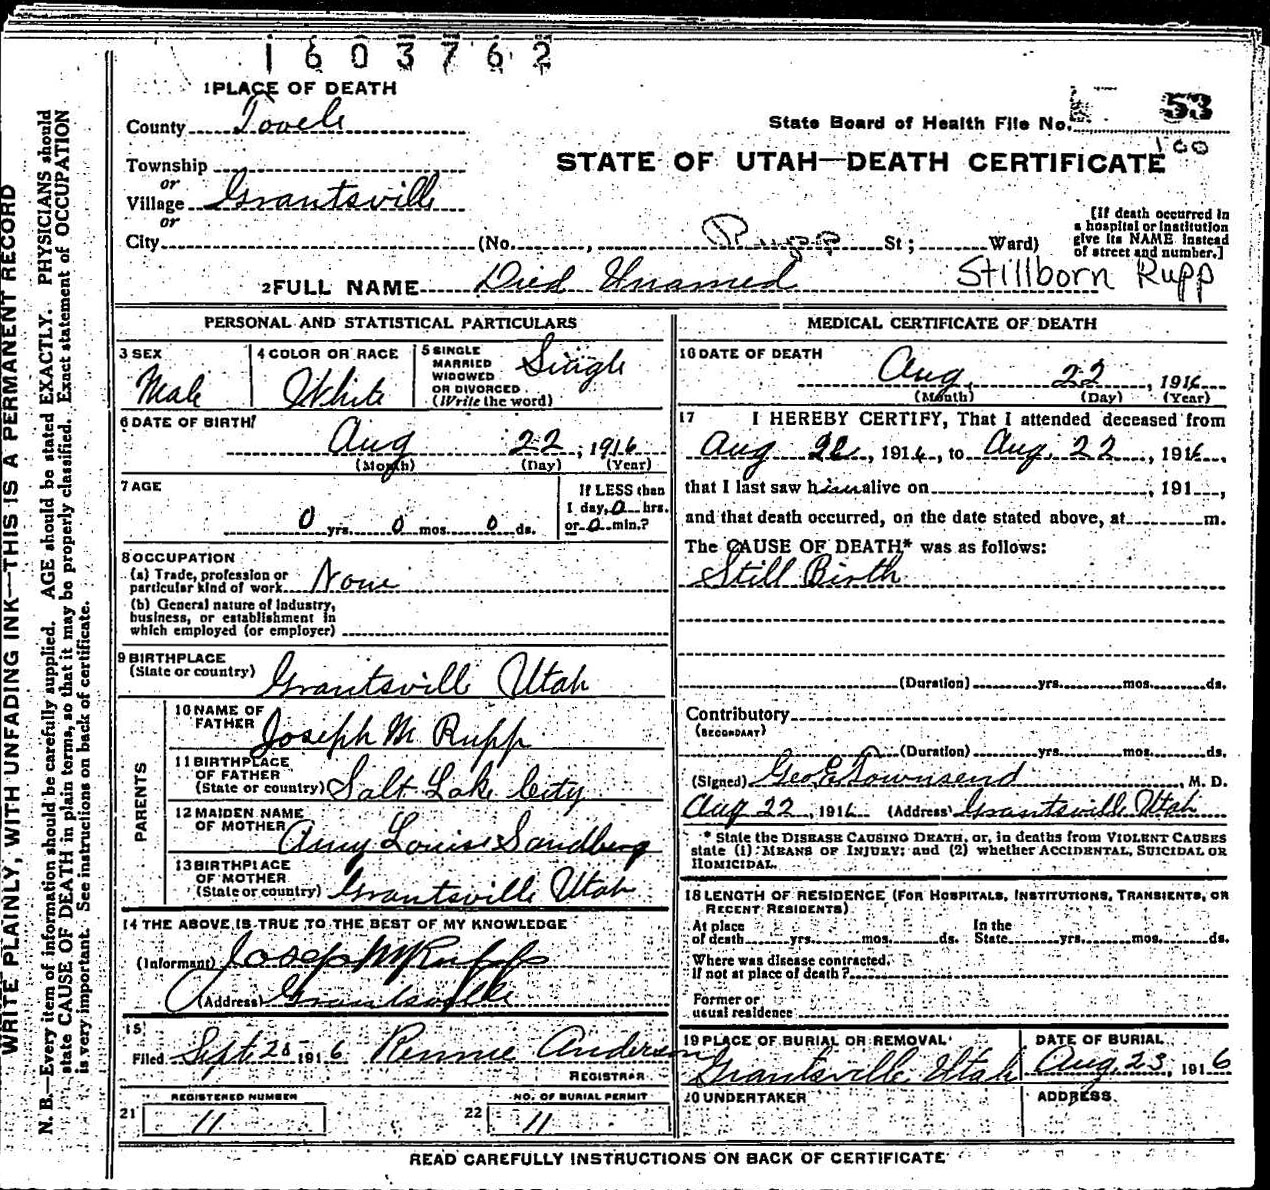 1603762
1 PLACE OF DEATH
County Tooele
State Board of Health File No. 53
100
STATE OF UTAH—DEATH CERTIFICATE
Township
or
Village Grantsville
or
City (No. , Rupp St; Ward)
[If death occurred in
a hospital or institution
give its NAME instead
of street and number.]
2 FULL NAME Died Unamed Stillborn Rupp
PERSONAL AND STATISTICAL PARTICULARS
3 SEX
Male
4 COLOR OR RACE
White
5 SINGLE
MARRIED
WIDOWED
OR DIVORCED
(Write the word)
Single
6 DATE OF BIRTH
Aug 22, 1916
(Month) (Day) (Year)
7 AGE
0 yrs. 0 mos. 0 ds.
If LESS than
1 day, 0 hrs.
or 0 min.?
8 OCCUPATION
(a) Trade, profession or
particular kind of work None
(b) General nature of industry,
business, or establishment in
which employed (or employer)
9 BIRTHPLACE
(State or country) Grantsville Utah
PARENTS
10 NAME OF
FATHER Joseph M Rupp
11 BIRTHPLACE
OF FATHER
(State or country) Salt Lake City
12 MAIDEN NAME
OF MOTHER Amy Louise Sandberg
13 BIRTHPLACE
OF MOTHER
(State or country) Grantsville Utah
14 THE ABOVE IS TRUE TO THE BEST OF MY KNOWLEDGE
(Informant) Joseph M Rupp
(Address) Grantsville
15
Filed Sept 25 1916 Rennie Anderson
REGISTRAR
REGISTERED NUMBER
21 11
NO. OF BURIAL PERMIT
22 11
MEDICAL CERTIFICATE OF DEATH
16 DATE OF DEATH
Aug. 22, 1916
(Month) (Day) (Year)
17 I HEREBY CERTIFY, That I attended deceased from
Aug 22, 1916, to Aug. 22, 1916,
that I last saw him alive on , 191 ,
and that death occurred, on the date stated above, at m.
The CAUSE OF DEATH* was as follows:
Still Birth
(Duration) yrs. mos. ds.
Contributory
(SECONDARY)
(Duration) yrs. mos. ds.
(Signed) Geo E Townsend M. D.
Aug 22, 1916 (Address) Grantsville Utah
* State the DISEASE CAUSING DEATH, or, in deaths from VIOLENT CAUSES
state (1) MEANS OF INJURY; and (2) whether ACCIDENTAL, SUICIDAL OR
HOMICIDAL.
18 LENGTH OF RESIDENCE (FOR HOSPITALS, INSTITUTIONS, TRANSIENTS, OR
RECENT RESIDENTS)
At place In the
of death yrs. mos. ds. State yrs. mos. ds.
Where was disease contracted,
if not at place of death?
Former or
usual residence
19 PLACE OF BURIAL OR REMOVAL
Grantsville Utah
DATE OF BURIAL
Aug. 23, 1916
20 UNDERTAKER
ADDRESS
READ CAREFULLY INSTRUCTIONS ON BACK OF CERTIFICATE
WRITE PLAINLY, WITH UNFADING INK—THIS IS A PERMANENT RECORD
N. B.—Every item of information should be carefully supplied. AGE should be stated EXACTLY. PHYSICIANS should
state CAUSE OF DEATH in plain terms, so that it may be properly classified. Exact statement of OCCUPATION
is very important. See instructions on back of certificate.